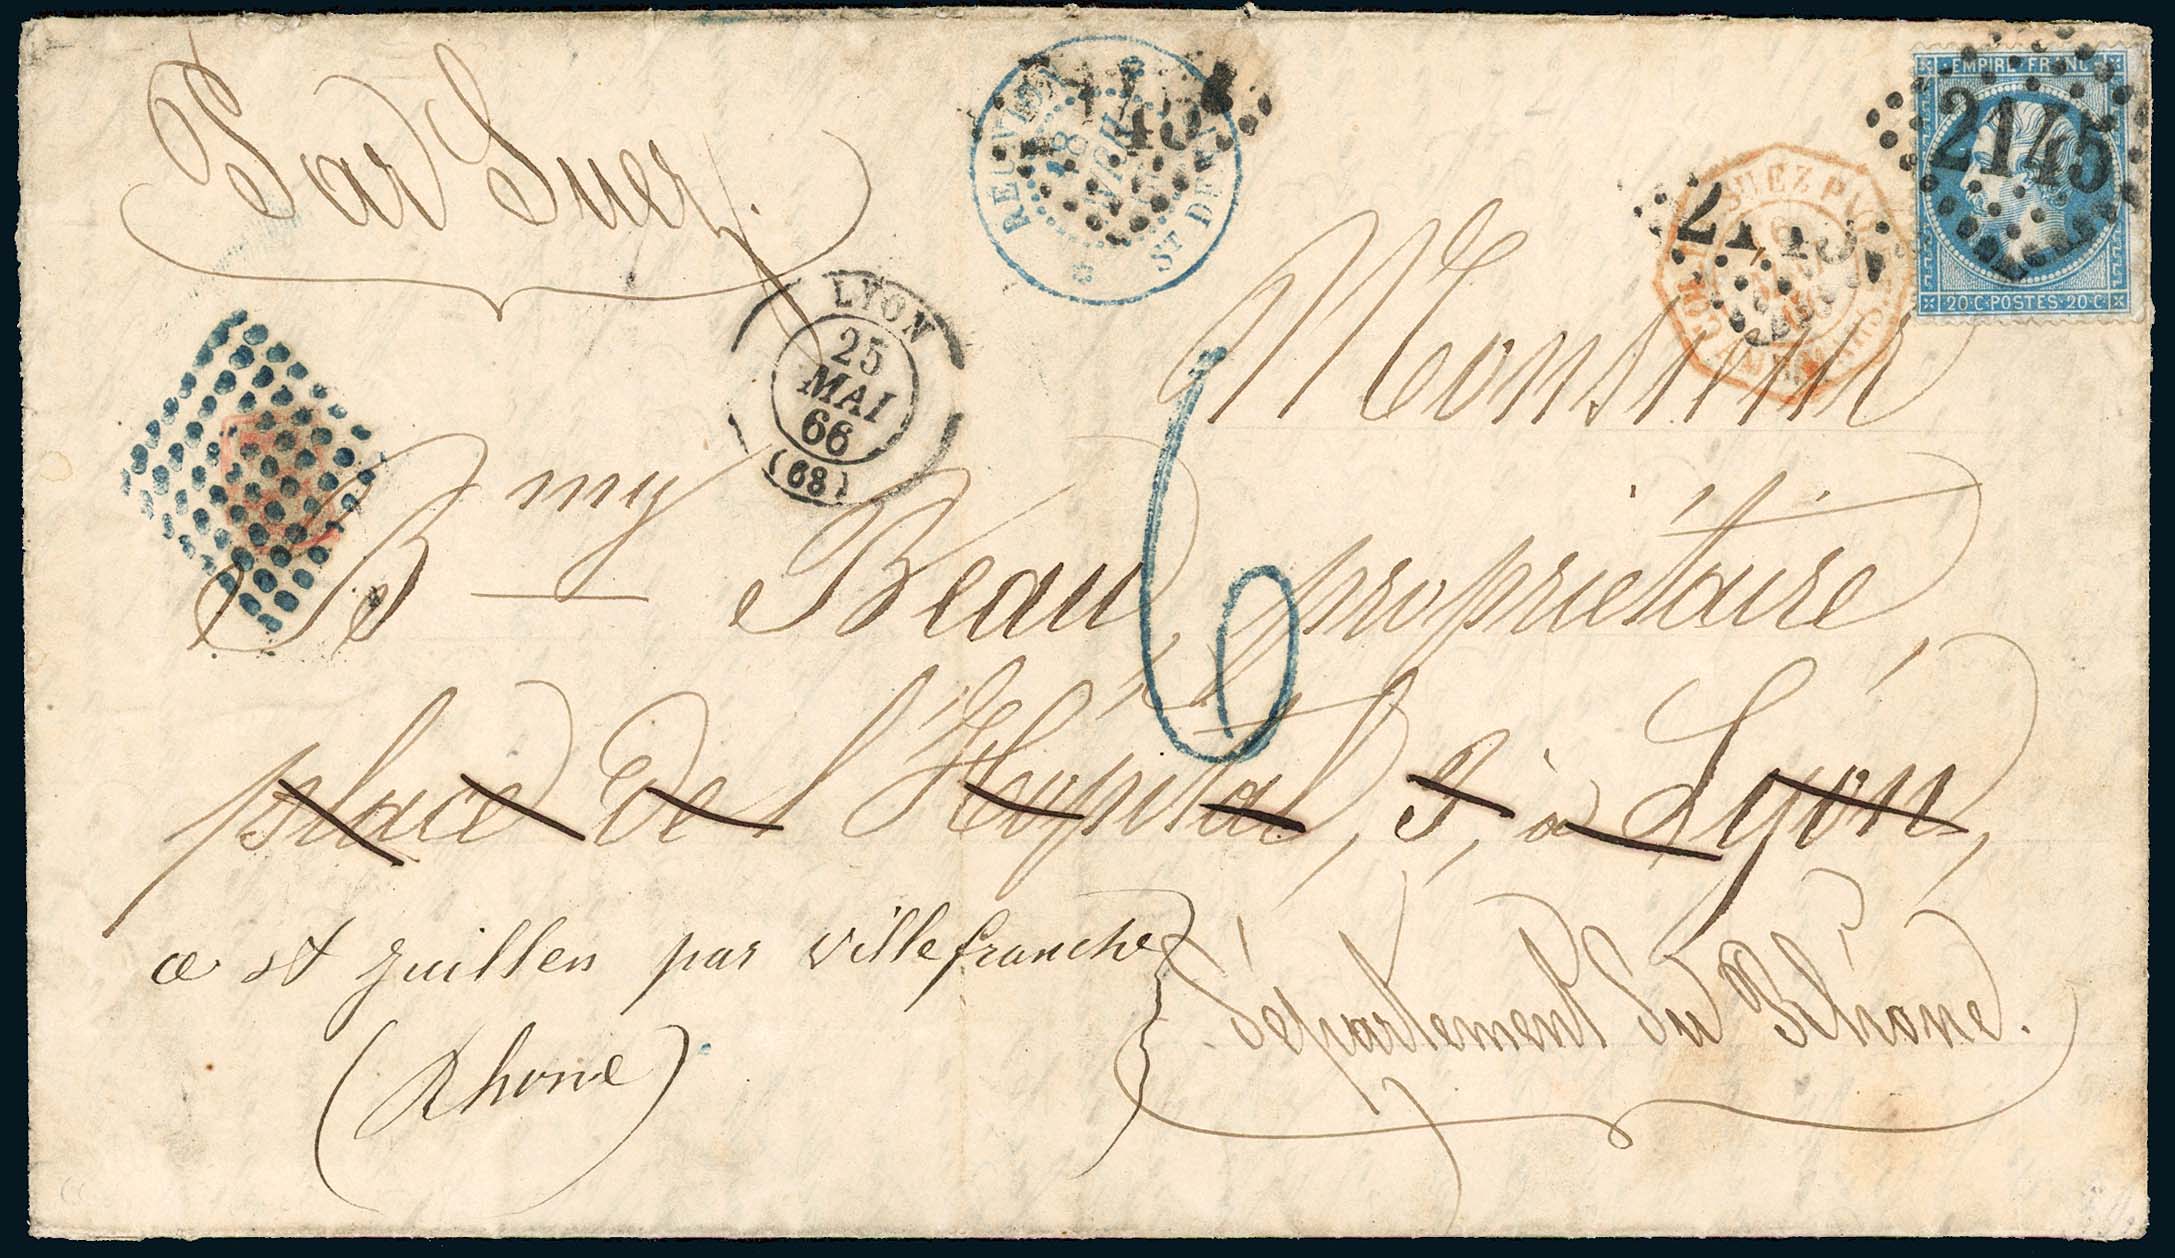 Par Suez.
REUNION
18
AVRIL
ST DENIS
2145
EMPIRE FRANC
2145
20 C POSTES 20 C
SUEZ
LYON
25
MAI
66
(68)
6
Monsieur
Bmy Beau, propriétaire,
place de l'Hôpital, 5, à Lyon,
a st juillen par villefranche
(Rhone)
département du Rhône.